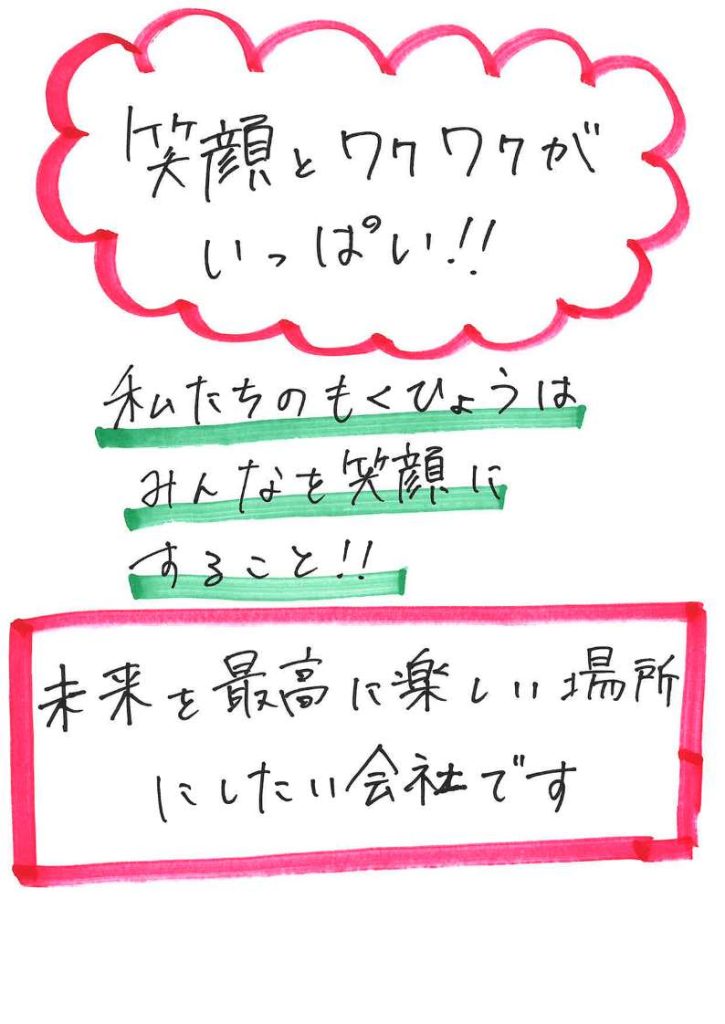 笑顔とワクワクが
いっぱい!!
私たちのもくひょうは
みんなを笑顔に
すること!!
未来を最高に楽しい場所
にしたい会社です